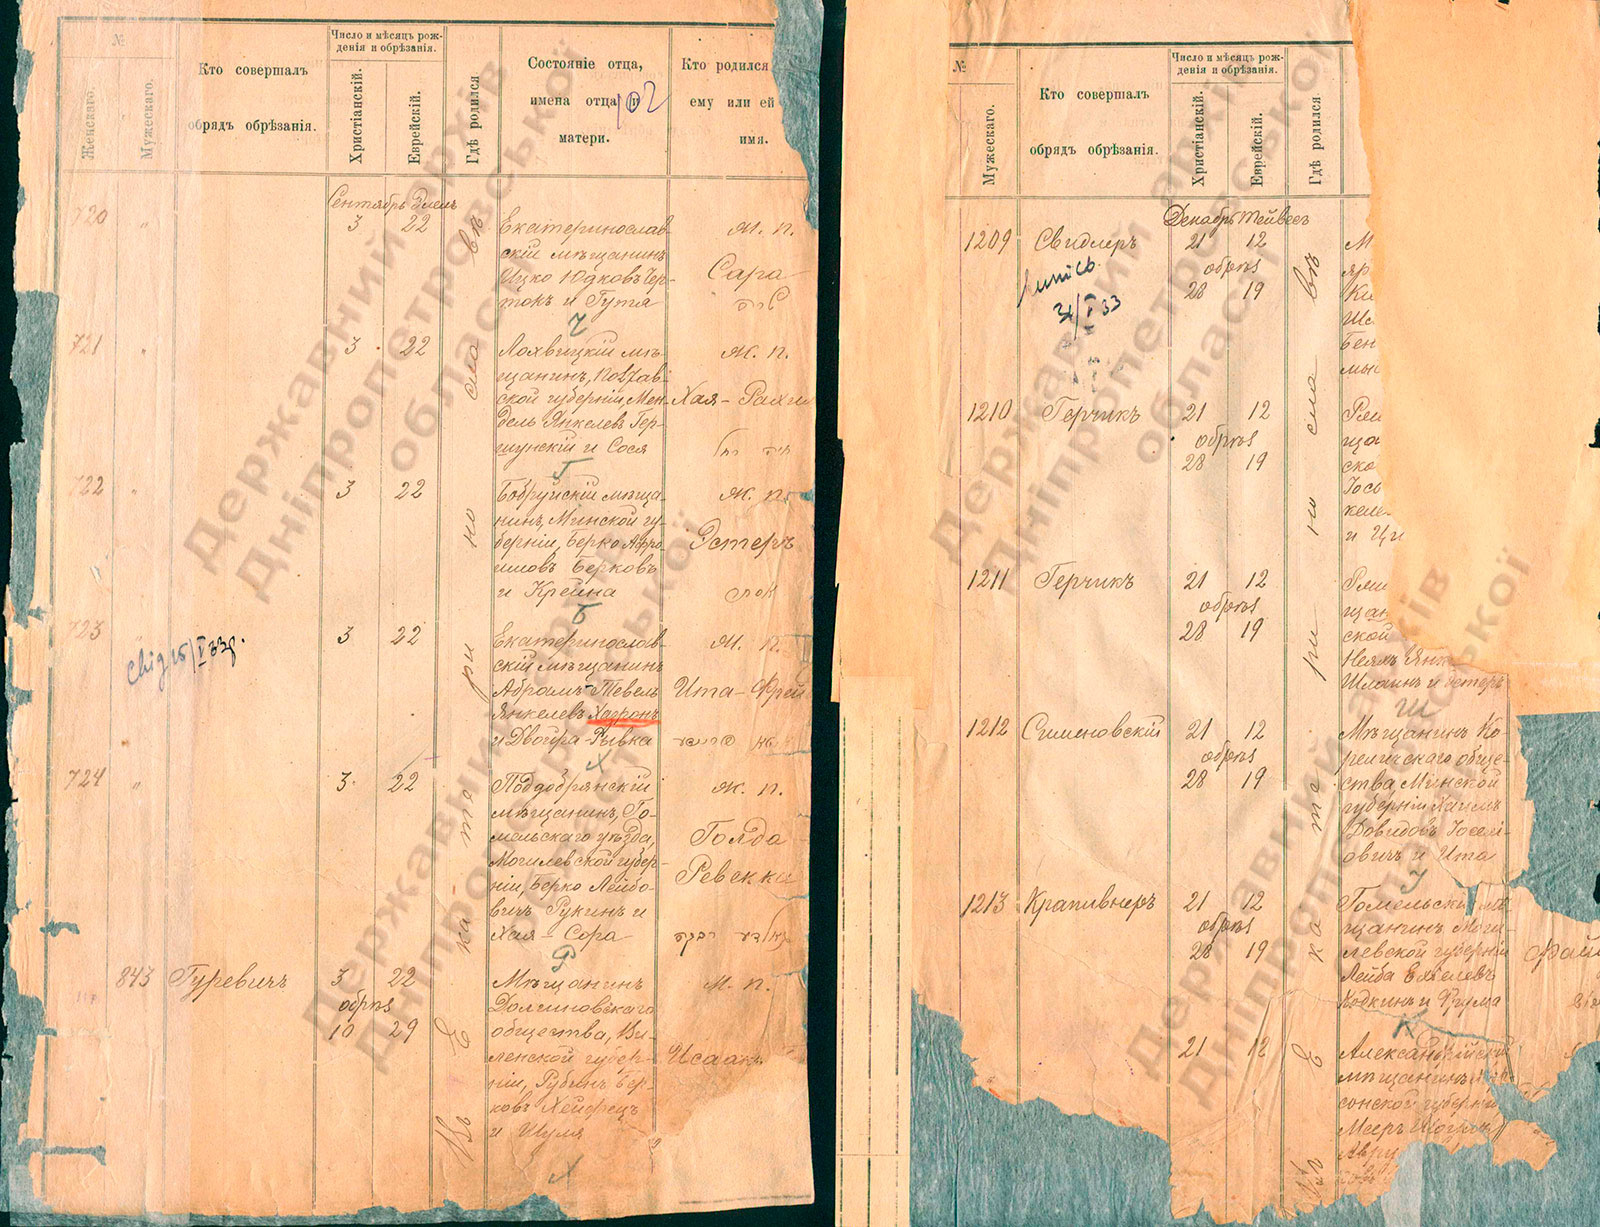 №
Женскаго.
Мужескаго.
Кто совершалъ
обрядъ обрѣзанія.
Число и мѣсяцъ рож-
денія и обрѣзанія.
Христіанскій.
Еврейскій.
Гдѣ родился
Состояніе отца,
имена отца и
матери.
102
Кто родился
ему или ей
имя.
Сентябрь Элель
720
"
3
22
Екатеринослав-
скій мѣщанинъ
Ицко Юдковъ Чер-
токъ и Гута
Ж. п.
Сара
שרה
Ч
721
"
3
22
Лохвицкій мѣ-
щанинъ, Полтав-
ской губерніи, Мен-
дель Янкелев Гер-
шунскій и Сося
Ж. п.
Хая - Рахил
Г
722
"
3
22
Бобруйскій мѣща-
нинъ, Минской гу-
берніи, Берко Афро-
имовъ Берковъ
и Крейна
Ж. п.
Эстеръ
Б
723
"
3
22
Екатеринослав-
скій мѣщанинъ
Абрамъ-Тевель
Янкелевъ Хавронъ
и Двойра-Рывка
Ж. п.
Ита - Фрей
Х
724
"
3
22
Поддобрянскій
мѣщанинъ, Го-
мельскаго уѣзда,
Могилевской губер-
ніи, Берко Лейбо-
вичъ Рукинъ и
Хая - Сора
Ж. п.
Голда
Ревекка
Р
843
Гуревичъ
3
22
обрѣз
10
29
Мѣщанинъ
Долгиновскаго
общества, Ви-
ленской губер-
ніи, Рубинъ Бер-
ковъ Хейфецъ
и Шуля
М. п.
Исаакъ
Х
Въ Екатеринославѣ
№
Мужескаго.
Кто совершалъ
обрядъ обрѣзанія.
Число и мѣсяцъ рож-
денія и обрѣзанія.
Христіанскій.
Еврейскій.
Гдѣ родился
Декабрь Тейвес
1209
Свидлеръ
21
12
обрѣз
28
19
М
яр
Ки
Ша
Бен
мы
31/V 33
1210
Герчикъ
21
12
обрѣз
28
19
ща
ско
Іось
келе
и Ци
1211
Герчикъ
21
12
обрѣз
28
19
щан
ской
Шлаинъ и Эстеръ
Ш
1212
Сгименовскій
21
12
обрѣз
28
19
Мѣщанинъ Ко-
реличскаго обще-
ства, Минской
губерніи Хаимъ
Довидовъ Іосел-
овичъ и Ита
1213
Крапивнеръ
21
12
обрѣз
28
19
Гомельскій мѣ-
щанинъ Моги-
левской губерніи
Лейба
Ходкинъ и Фрума
Фай
К
21
12
мѣщанинъ
сонской губерни
Мееръ
Въ Екатеринославѣ
Державний архів
Дніпропетровської
області
Державний архів
Дніпропетровської
області